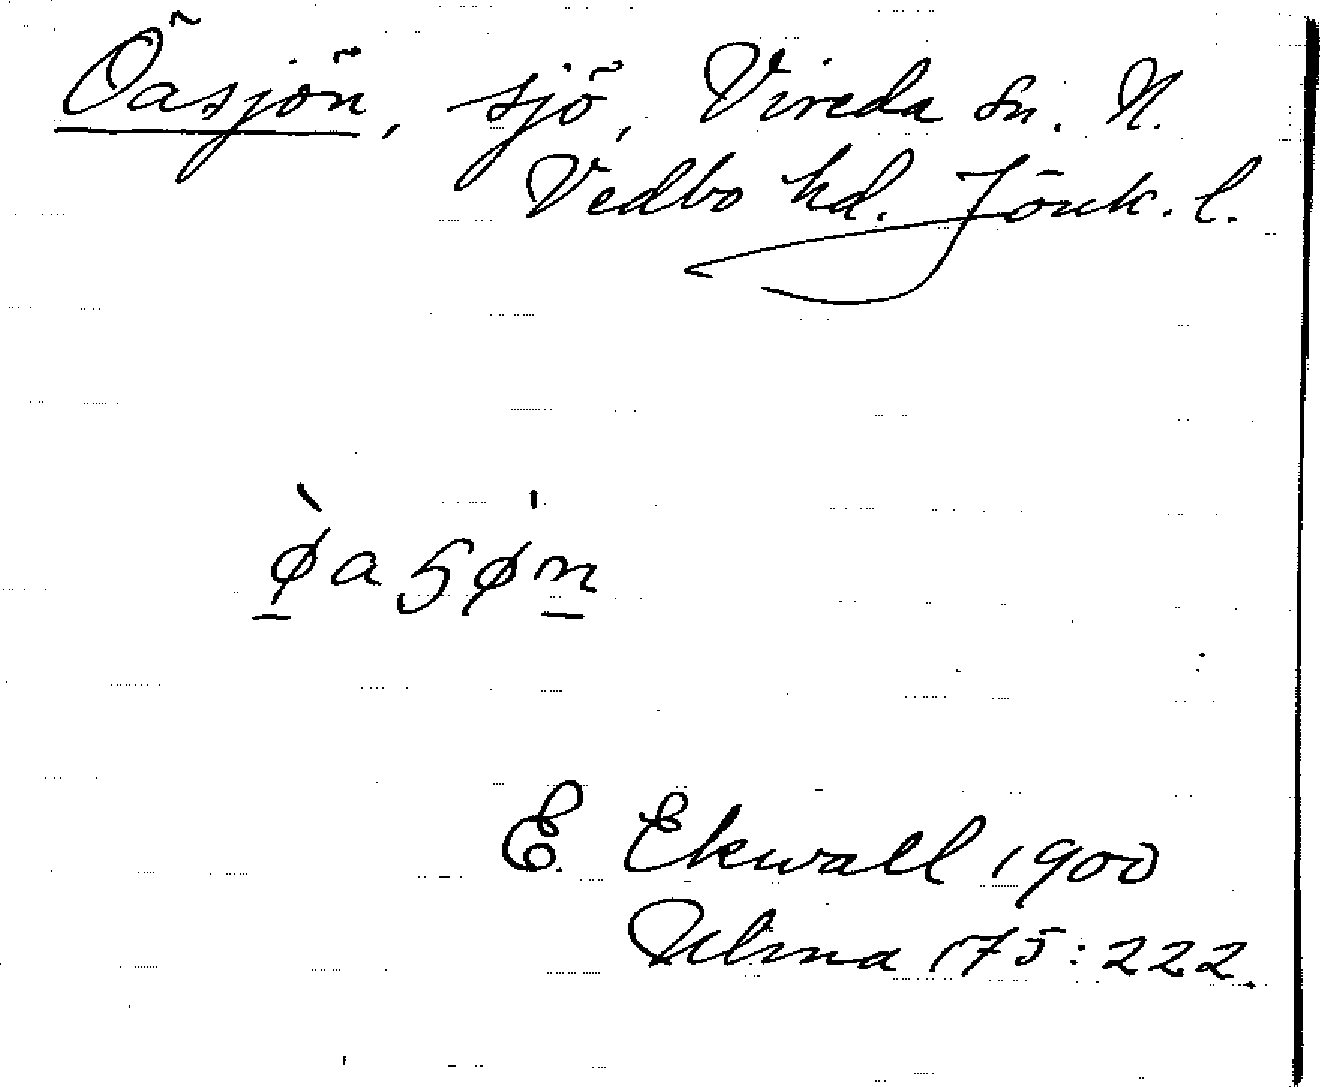 Öasjön, sjö, Vireda sn. N.
Vedbo hd. Jönk. l.
ø̀asø̍n
E. Ekwall 1900
Ulma 175:222.